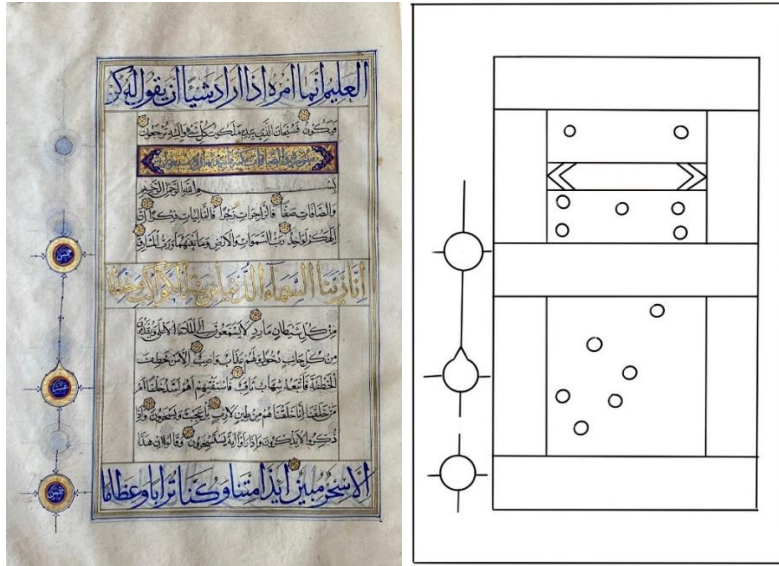 العليم انما امره اذا اراد شيئا ان يقول له كن
فيكون فسبحان الذي بيده ملكوت كل شئ واليه ترجعون
بسم الله الرحمن الرحيم
والصافات صفا فالزاجرات زجرا فالتاليات ذكرا ان
الهكم لواحد رب السموات والارض وما بينهما ورب المشارق
انا زينا السماء الدنيا بزينة الكواكب وحفظا
من كل شيطان مارد لا يسمعون الى الملا الاعلى ويقذفون
من كل جانب دحورا ولهم عذاب واصب الا من خطف
الخطفة فاتبعه شهاب ثاقب فاستفتهم اهم اشد خلقا ام
من خلقنا انا خلقناهم من طين لازب بل عجبت ويسخرون واذا
ذكروا لا يذكرون واذا راوا اية يستسخرون وقالوا ان هذا
الا سحر مبين ائذا متنا وكنا ترابا وعظاما